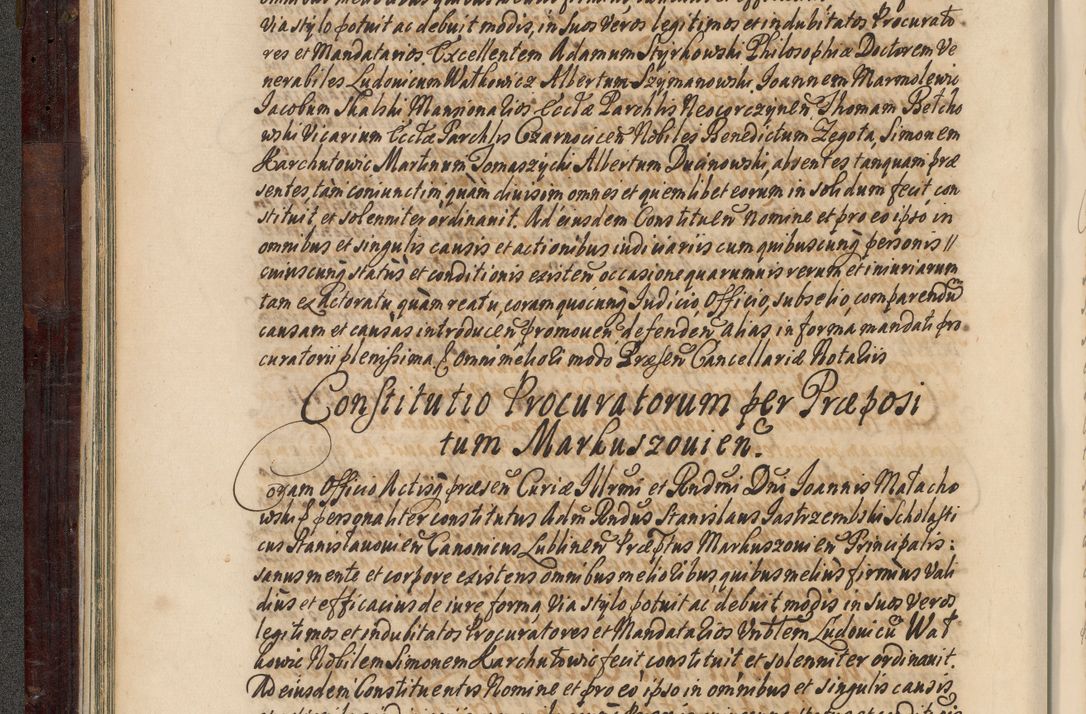 via stylo potuit ac debuit modis, in suos veros legitimos et indubitatos Procurato
res et Mandatarios Excellentem Adamum Styrkowski Philosophiæ Doctorem Ve
nerabiles Ludovicum Watkowicz Albertum Szymanowski Joannem Marmolewic
Jacobum Skalski Mansionarios Eccłæ Parchlis Neocorczynen Thomam Betcho
wski Vicarium Eccłæ Parchlis Czarnocicen Nobiles Bendictum Zegota, Simonem
Karchutowic Martinum Tomaszycki Albertum Duanowski, absentes tanquam præ
sentes, tam coniunctim, quàm divisim omnes et quemlibet eorum in solidum fecit, con
stituit et solenniter ordinavit. Ad eiusdem Constituen Nomine et pro eo ipso in
omnibus et singulis causis et actionibus iudiciariis cum quibuscunq personis //
cuiuscunq status et conditionis existen occasione quarumvis rerum et iniuriarum
tam ex Actoratu, quàm reatu, coram quocunq Judicio, Officio, subselio, comparendu
causam et causas introducen promoven defenden alias in forma mandati pro
curatorii plenissima Et omni meliori modo Præsen Cancellariæ Notariis
Constitutio Procuratorum per Præposi
tum Markuszovien.
Coram Officio Actisq præsen Curiæ Illrmi et Rndmi Dni Joannis Małacho
wski p personaliter constitutus Adm Rndus Stanislaus Jastrzembski Scholasti
cus Stanislavovien Canonicus Lublinen Præptus Markuszovien Principalis:
sanus mente et corpore existens omnibus melioribus quibus melius firmius vali
dius et efficacius de iure forma, via stylo potuit ac debuit modis in suos veros
legitimos et indubitatos Procuratores et Mandatarios Vnblem Ludovicu Wat
kowic Nobilem Simonem Karchutowic fecit constituit et solenniter ordinavit.
Ad eiusdem Constituentis Nomine et pro eo ipso in omnibus et singulis causis